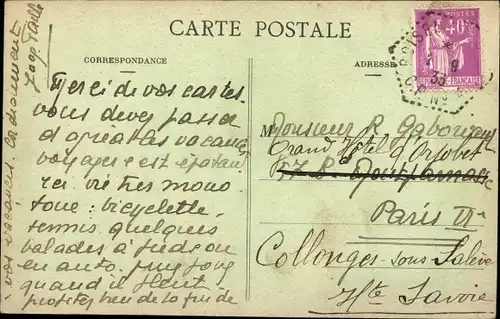 CARTE POSTALE
CORRESPONDANCE
ADRESSE
POSTES
40c
RÉPUBLIQUE FRANÇAISE
Merci de vos cartes.
vous devez passer
d'agréables vacances
voyager c'est épatant
Ici vie très mono
tone : bicyclette
tennis, quelques
balades à pied, ou
en auto. ping pong
quand il pleut.
profitez bien de la fin de
vos vacances. Cordialement
Monsieur R.
Grand Hôtel d'
57 B. Montparnasse
Paris
Collonges-sous-Salève
Hte Savoie